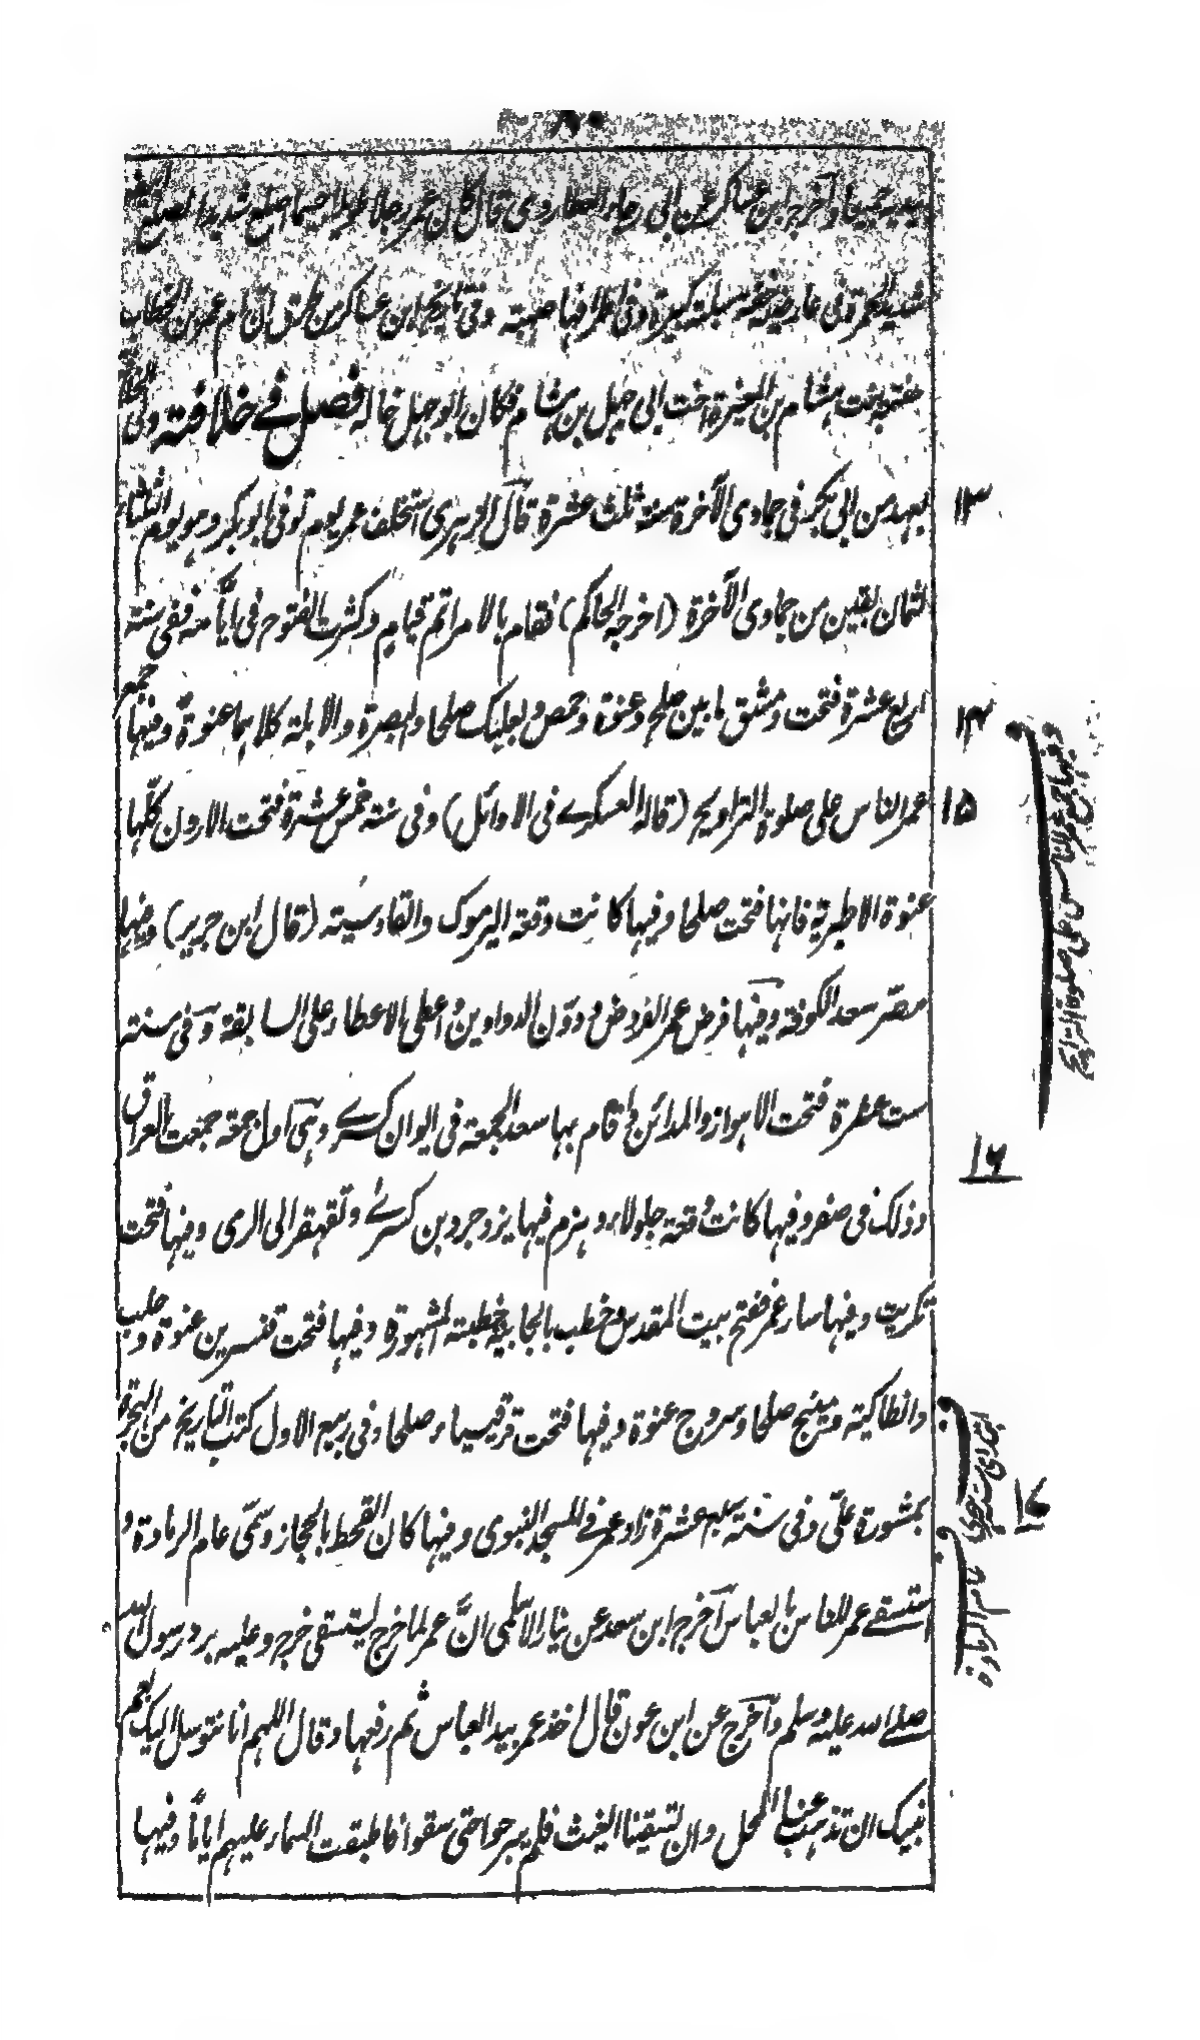 بيديه جميعا وأخرج ابن عساكر عن ابى رجاء العطاردى قال كان عمر رجلا طويلا جسيما اصلع شديد الصلع
شديد الحمرة فى عارضيه خفة سبلته كبيرة وفى اطرافها صهبة وفى تاريخ ابن عساكر من طرق ان ام عمر بن الخطاب
حنتمة بنت هشام بن المغيرة اخت ابى جهل بن هشام فكان ابو جهل خاله فصل فے خلافته ولى الخلافة
بعهد من ابى بكر فى جمادى الآخرة سنة ثلث عشرة قال الزهرى استخلف عمر يوم توفى ابو بكر وهو يوم الثلثاء
لثمان بقين من جمادى الآخرة (اخرجه الحاكم) فقام بالامر اتم قيام وكثرت الفتوح فى ايامه ففى سنة
اربع عشرة فتحت دمشق ما بين صلح وعنوة وحمص وبعلبك صلحا والبصرة والابلة كلاهما عنوة وفيها جمع
عمر الناس على صلوة التراويح (قاله العسكرے فى الاوائل) وفى سنة خمس عشرة فتحت الاردن كلها
عنوة الا طبرية فانها فتحت صلحا وفيها كانت وقعة اليرموك والقادسية (قال ابن جرير) وفيها
مصر سعد الكوفة وفيها فرض عمر الفروض ودون الدواوين واعطى الاعطاء على السابقة وفى سنة
ست عشرة فتحت الاهواز والمدائن واقام بها سعد الجمعة فى ايوان كسرے وهى اول جمعة جمعت بالعراق
وذلك فى صفر وفيها كانت وقعة جلولاء وهزم فيها يزدجرد بن كسرے وتقهقر الى الرى وفيها فتحت
تكريت وفيها سار عمر ففتح بيت المقدس وخطب بالجابية خطبته المشهورة وفيها فتحت قنسرين عنوة وحلب
وانطاكية ومنبج صلحا وسروج عنوة وفيها فتحت قرقيسياء صلحا وفى ربيع الاول كتب التاريخ من الهجرة
بمشورة على وفى سنة سبع عشرة زاد عمر فے المسجد النبوى وفيها كان القحط بالحجاز وسمى عام الرمادة و
استسقے عمر للناس بالعباس أخرج ابن سعد عن نيار الاسلمى ان عمر لما خرج يستسقى خرج وعليه برد رسول الله
صلے الله عليه وسلم وأخرج عن ابن عون قال اخذ عمر بيد العباس ثم رفعها وقال اللهم انا نتوسل اليك بعم
نبيك ان تذهب عنا المحل وان تسقينا الغيث فلم يبرحوا حتى سقوا فاطبقت السماء عليهم اياما وفيها
١٣
١٤
١٥
وفيها جمع عمر الناس على صلوة التراويح
١٦
١٧
عام الرمادة